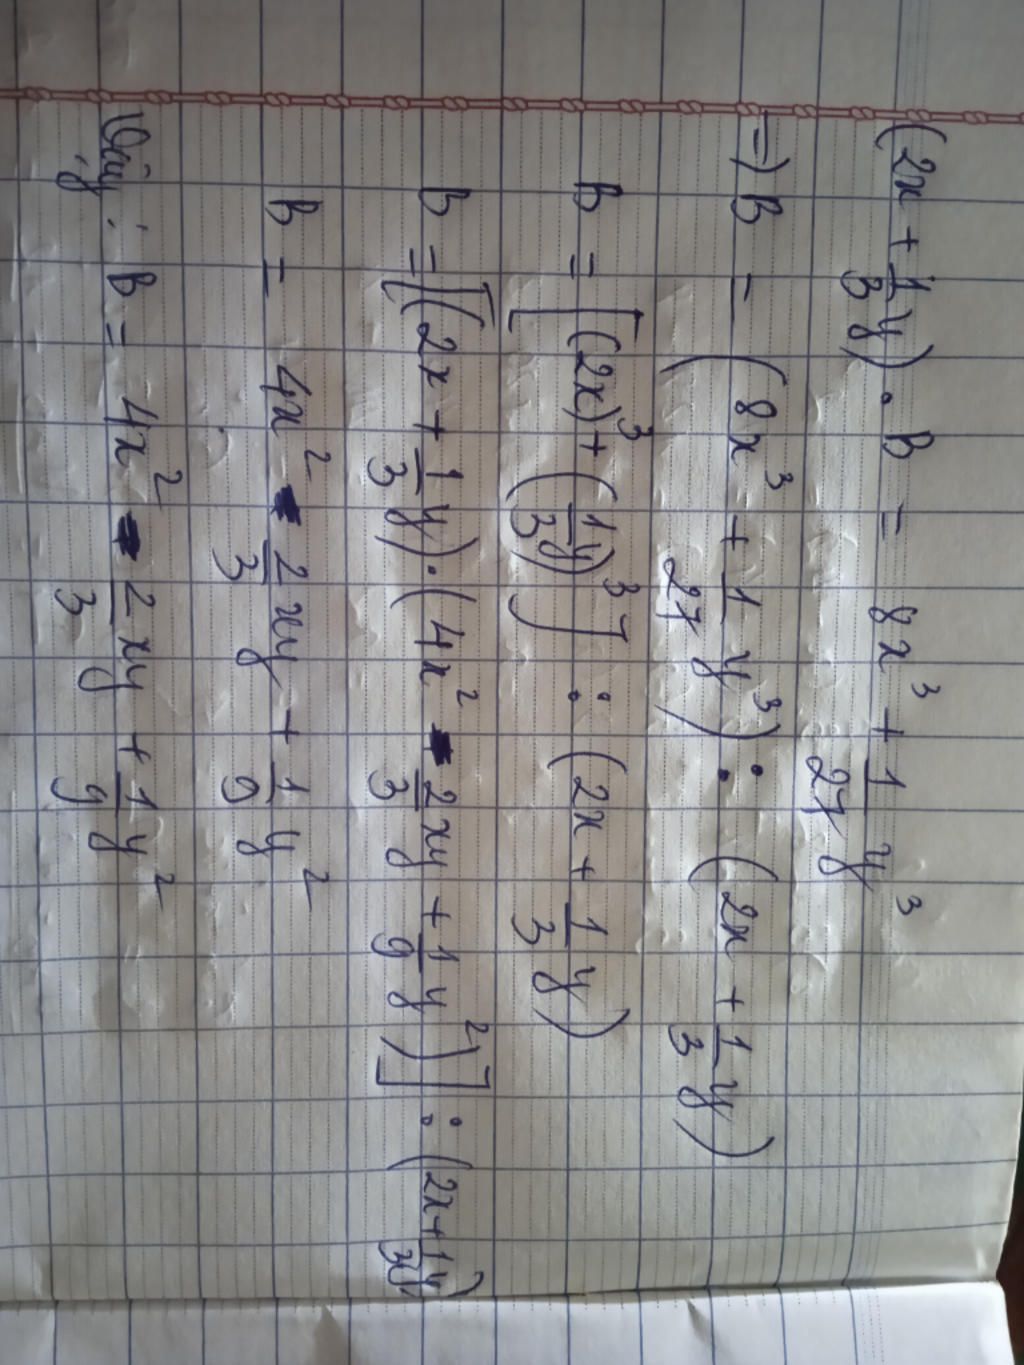 (2x + 1/3 y) . B = 8x³ + 1/27 y³
=> B = (8x³ + 1/27 y³) : (2x + 1/3 y)
B = [(2x)³ + (1/3 y)³] : (2x + 1/3 y)
B = [(2x + 1/3 y) . (4x² - 2/3 xy + 1/9 y²)] : (2x + 1/3 y)
B = 4x² - 2/3 xy + 1/9 y²
Vậy : B = 4x² - 2/3 xy + 1/9 y²